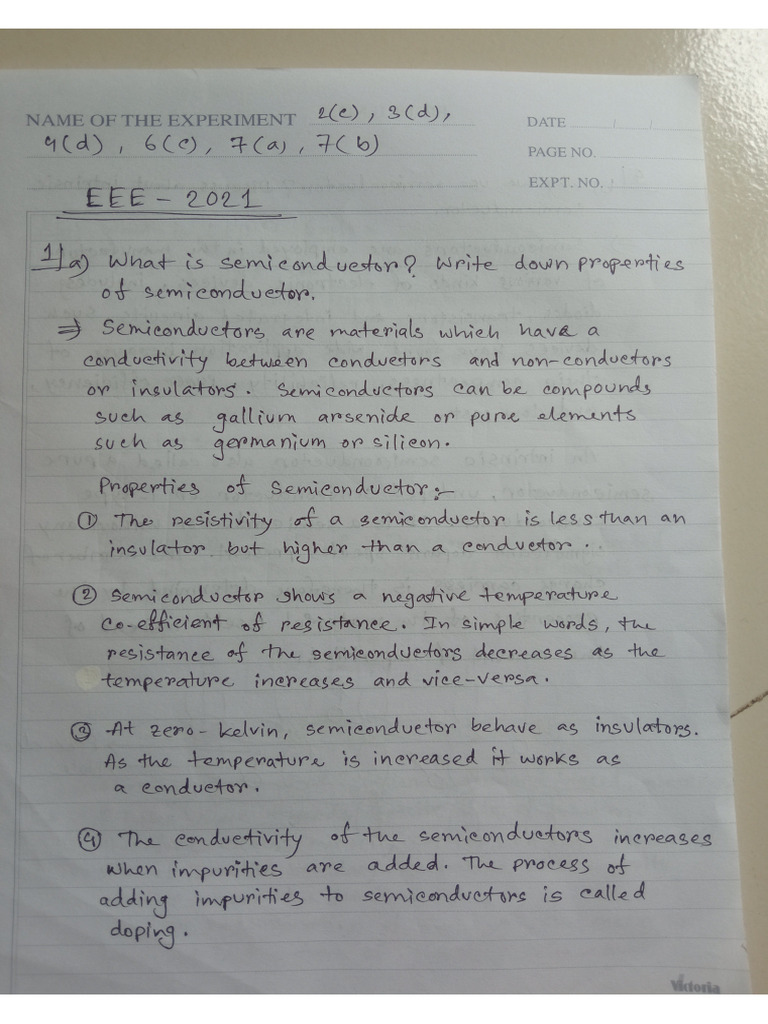 NAME OF THE EXPERIMENT 2(c), 3(d),
DATE / /
4(d), 6(c), 7(a), 7(b)
PAGE NO.
EXPT. NO.
EEE - 2021
1|a) What is semiconductor? Write down properties
of semiconductor.
⇒ Semiconductors are materials which have a
conductivity between conductors and non-conductors
or insulators. Semiconductors can be compounds
such as gallium arsenide or pure elements
such as germanium or silicon.
Properties of Semiconductor:-
① The resistivity of a semiconductor is less than an
insulator but higher than a conductor.
② Semiconductor shows a negative temperature
co-efficient of resistance. In simple words, the
resistance of the semiconductors decreases as the
temperature increases and vice-versa.
③ At zero-kelvin, semiconductor behave as insulators.
As the temperature is increased it works as
a conductor.
④ The conductivity of the semiconductors increases
when impurities are added. The process of
adding impurities to semiconductors is called
doping.
Victoria